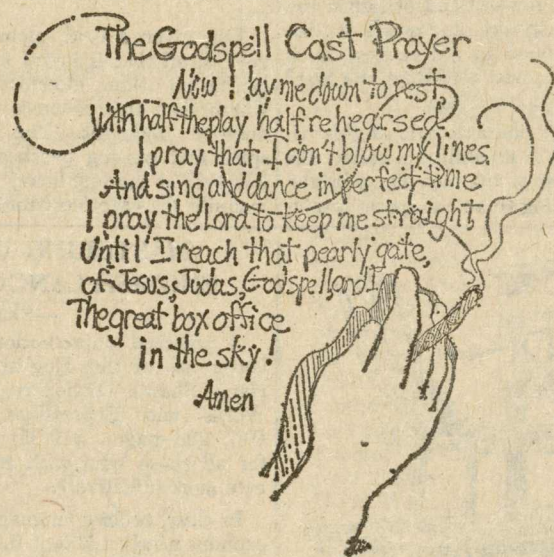 The Godspell Cast Prayer
Now I lay me down to rest,
With half the play half rehearsed
I pray that I don't blow my lines
And sing and dance in perfect time
I pray the Lord to keep me straight,
Until I reach that pearly gate,
of Jesus, Judas, Godspell, and I,
The great box office
in the sky!
Amen